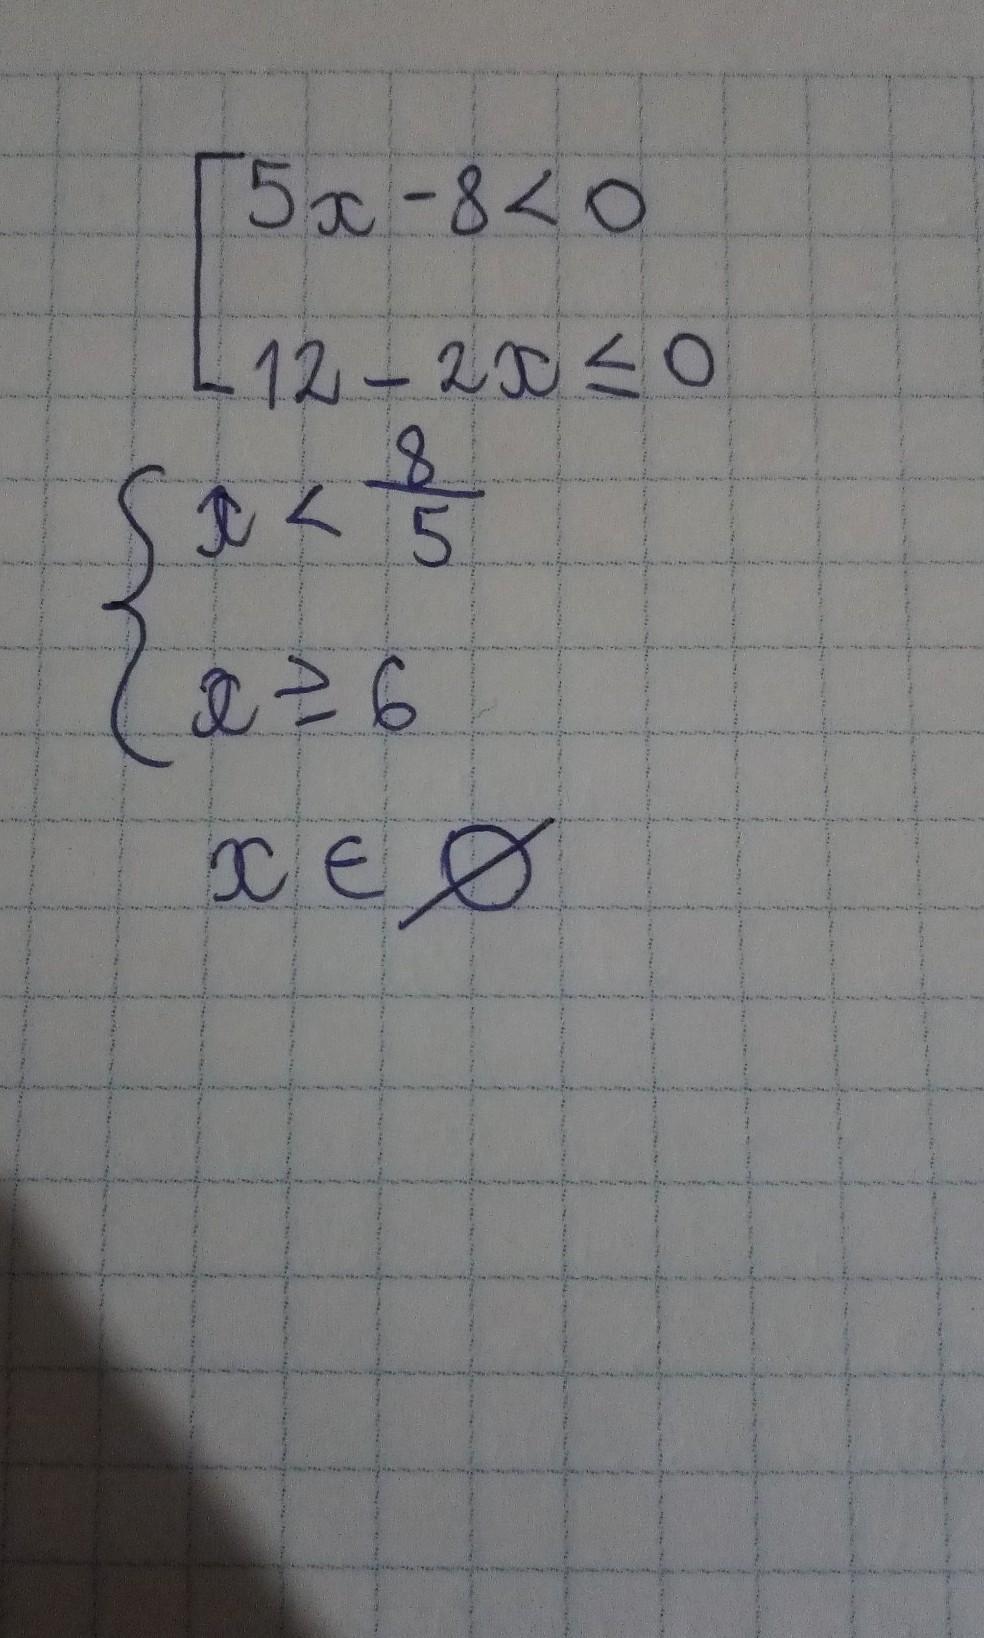 [ 5x - 8 < 0
12 - 2x ≤ 0
{ x < 8/5
x ≥ 6
x ∈ ∅